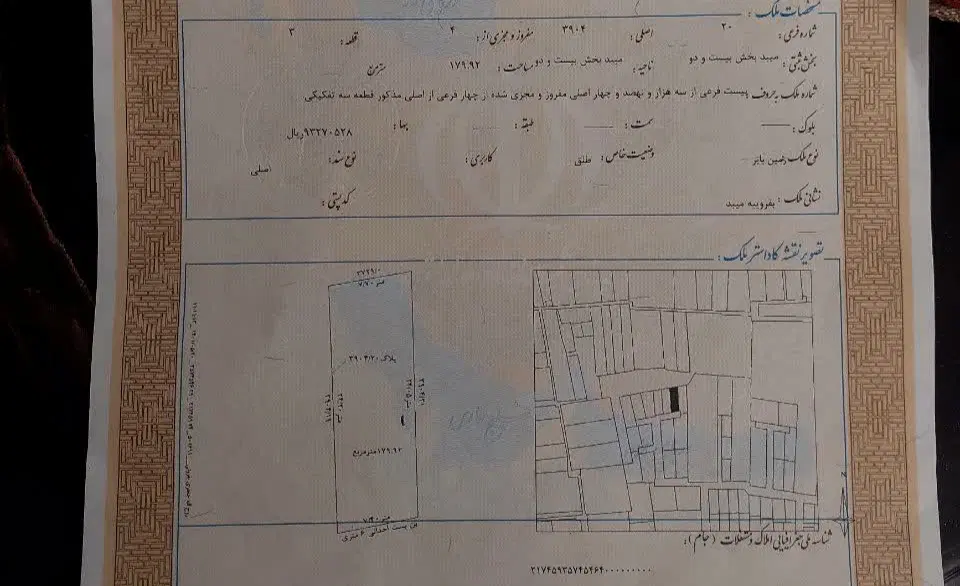 مشخصات ملک :
شماره فرعی : ۲۰ اصلی : ۳۹۰۴ مفروز و مجزی از : ۴ قطعه : ۳
بخش ثبتی : میبد بخش بیست و دو ناحیه : میبد بخش بیست و دو مساحت : ۱۷۹.۹۲ مترمربع
شماره ملک به حروف : بیست فرعی از سه هزار و نهصد و چهار اصلی مفروز و مجزی شده از چهار فرعی از اصلی مذکور قطعه سه تفکیکی
بلوک : سمت : طبقه : بها : ۹۳۲۷۰۵۲۸ ریال
نوع ملک : زمین بایر وضعیت خاص : طلق کاربری : نوع سند : اصلی
نشانی ملک : بفروییه میبد کد پستی :
تصویر نقشه کاداستر ملک :
متر ۷/۷۰
پلاک ۳۹۰۴/۲۰
۱۷۹.۹۲ مترمربع
متر ۷/۴۰
بن بست احداثی ۶ متری
شناسه ملی جغرافیایی املاک و مستغلات (جام) :
۳۱۷۴۵۹۳۵۷۴۵۴۶۴۰۰۰۰۰۰۰۰۰